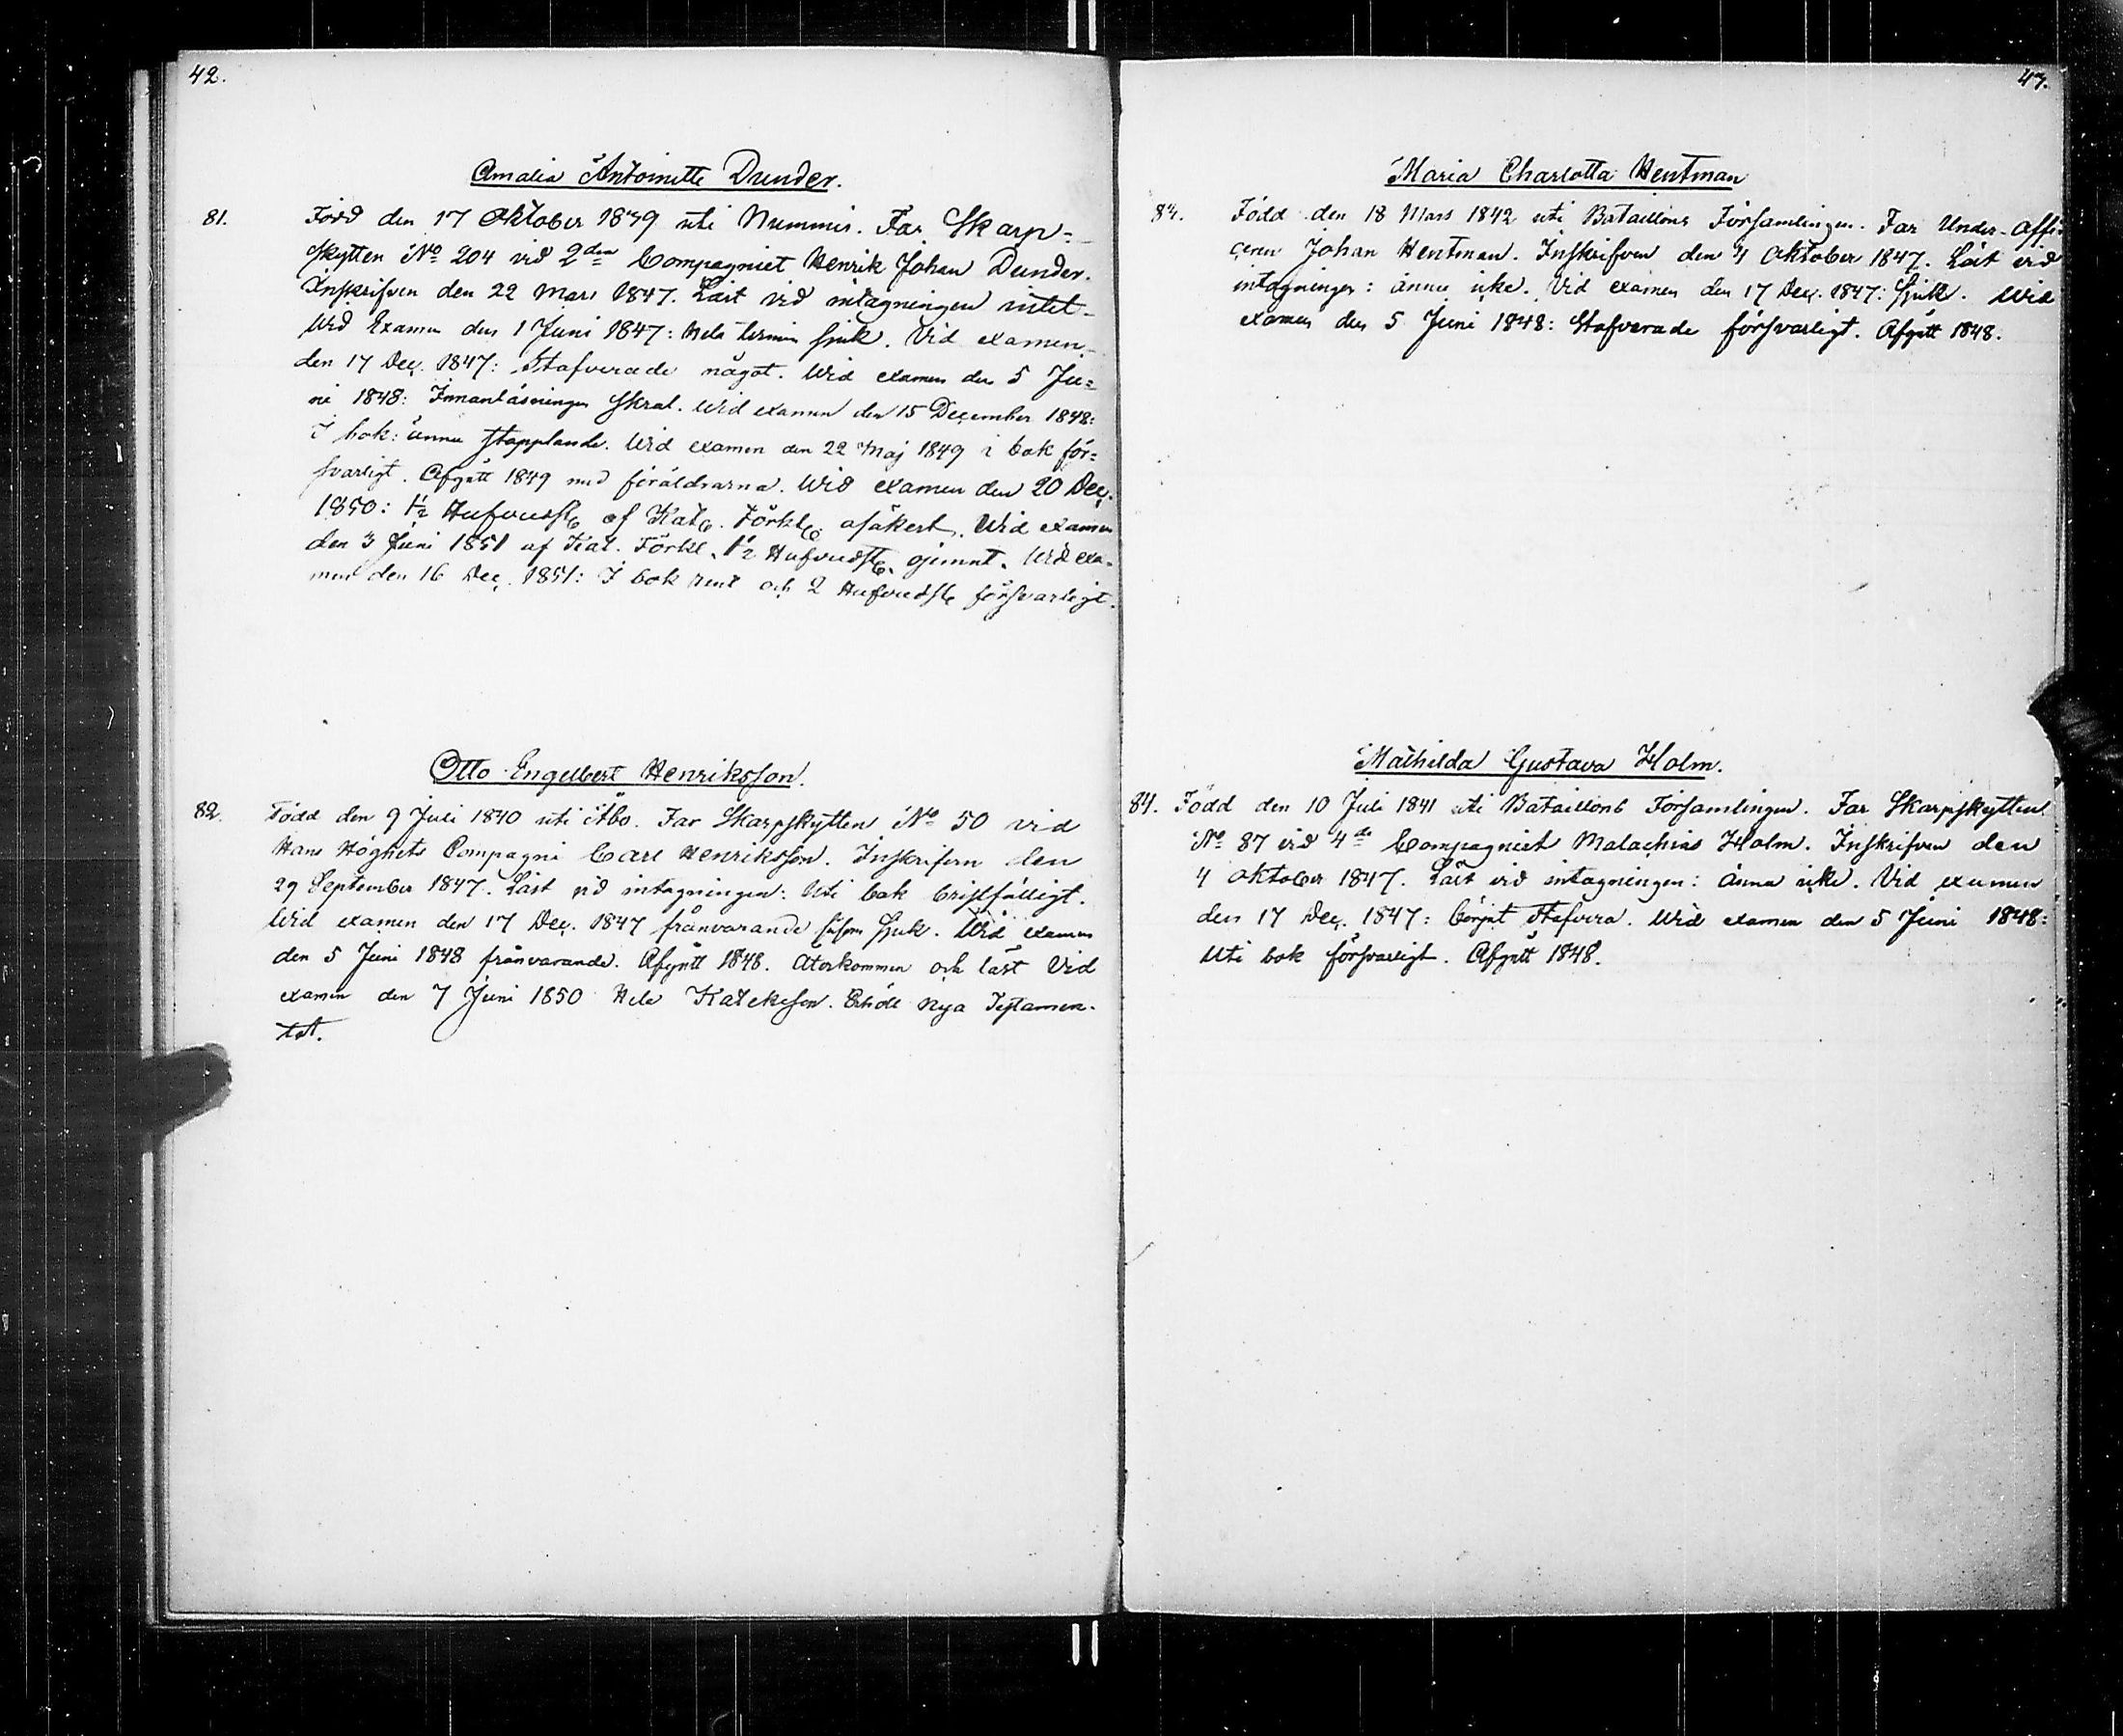 42.
Amalia Antoinette Dunder.
81. Född den 17 Oktober 1839 uti Nummis. Far Skarp=
skytten No 204 vid 2den Compagniet Henrik Johan Dunder.
Inskrifven den 22 Mars 1847. Läst vid intagningen intet.
Wid Examen den 1 Juni 1847: Hela termin sjuk. Vid examen
den 17 Dec. 1847: Stafverade något. Wid examen den 5 Ju=
ni 1848: Innanläsningen skral. Wid examen den 15 December 1848:
I bok: ännu stapplande. Wid examen den 22 Maj 1849 i bok för=
svarligt. Afgått 1849 med föräldrarna. Wid examen den 20 Dec.
1850: 1½ Hufvudst. af Kat. Förkl. osäkert. Wid examen
den 3 Juni 1851 af Kat. Förkl. 1½ Hufvudst. ojemnt. Wid exa-
men den 16 Dec. 1851: I bok rent och 2 Hufvudst. försvarligt.
Otto Engelbert Henriksson.
82. Född den 9 Juli 1840 uti Åbo. Far Skarpskytten No 50 vid
Hans Höghets Compagni Carl Henriksson. Inskrifven den
29 September 1847. Läst vid intagningen: Uti bok bristfälligt.
Wid examen den 17 Dec. 1847 frånvarande såsom sjuk. Wid examen
den 5 Juni 1848 frånvarande. Afgått 1848. Återkommen och läst Vid
examen den 7 Juni 1850 Hela Katekesen. Erhöll Nya Testamen-
tet.
43.
Maria Charlotta Hentman
84. Född den 18 Mars 1842 uti Bataillons Församlingen. Far Under-Offi-
ceren Johan Hentman. Inskrifven den 4 Oktober 1847. Läst vid
intagningen: ännu icke. Vid examen den 17 Dec. 1847: Sjuk. Wid
examen den 5 Juni 1848: Stafverade försvarligt. Afgått 1848.
Mathilda Gustava Holm.
84. Född den 10 Juli 1841 uti Bataillons Församlingen. Far Skarpskytten
No 87 vid 4de Compagniet Malachias Holm. Inskrifven den
4 Oktober 1847. Läst vid intagningen: ännu icke. Vid examen
den 17 Dec. 1847: börjat stafvera. Wid examen den 5 Juni 1848:
Uti bok försvarligt. Afgått 1848.